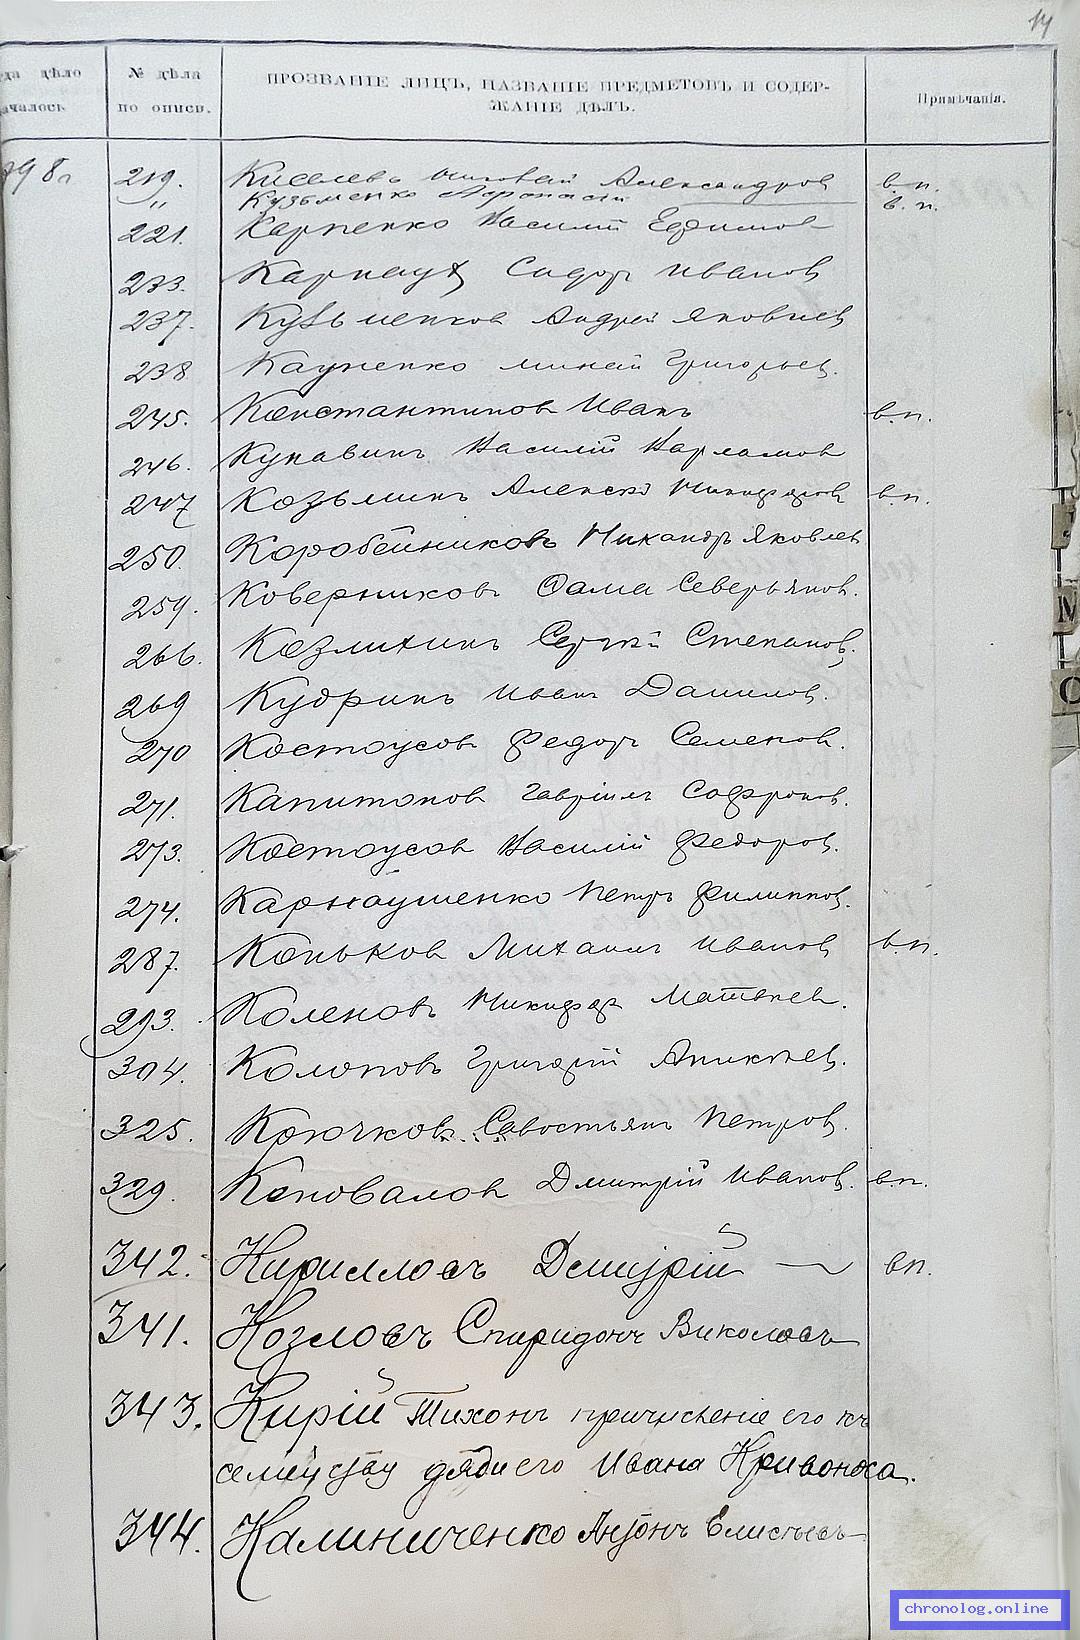 14
да дѣло
ачалось
№ дѣла
по описи.
ПРОЗВАНІЕ ЛИЦЪ, НАЗВАНІЕ ПРЕДМЕТОВЪ И СОДЕР-
ЖАНІЕ ДѢЛЪ.
Примѣчанія.
219. Киселевъ Александров в. п.
" Кузьменко Афанасій в. п.
221. Карпенко Василій Ефимов
233. Карнаух Сидор Иванов
237. Кузьменков Андрей Яковлев
238 Минай Григорьев.
245. Константинов Иванъ в. п.
246. Кунавинъ Василій Варламов
247 Козьминъ Алексей Никифоров в. п.
250. Коробейниковъ Никандръ Яковлев
259. Коверниковъ Фома Северьянов.
266. Козлитинъ Сергѣй Степанов,
269 Кудринъ Иванъ Данилов.
270 Костоусовъ Федоръ Семенов.
271. Капитонов Гавріилъ Софронов.
273. Костоусов Василій Федоров.
274. Карнаушенко Петръ Филиппов.
287. Коньков Михаилъ Иванов в. п.
293. Коленовъ Никифоръ Матвѣев.
304. Колоповъ Григорій Аникѣев.
325. Крючковъ Севостьянъ Петров.
329. Коновалов Дмитрій Иванов. в. п.
342. Кирилловъ Дмитрій — вп.
341. Козловъ Спиридонъ Виколовъ
343. Кирій Тихонъ причисленіе его къ
семейству дяди его Ивана Кривоноса.
344. Калиниченко Антонъ Елисѣевъ
М
С
chronolog.online